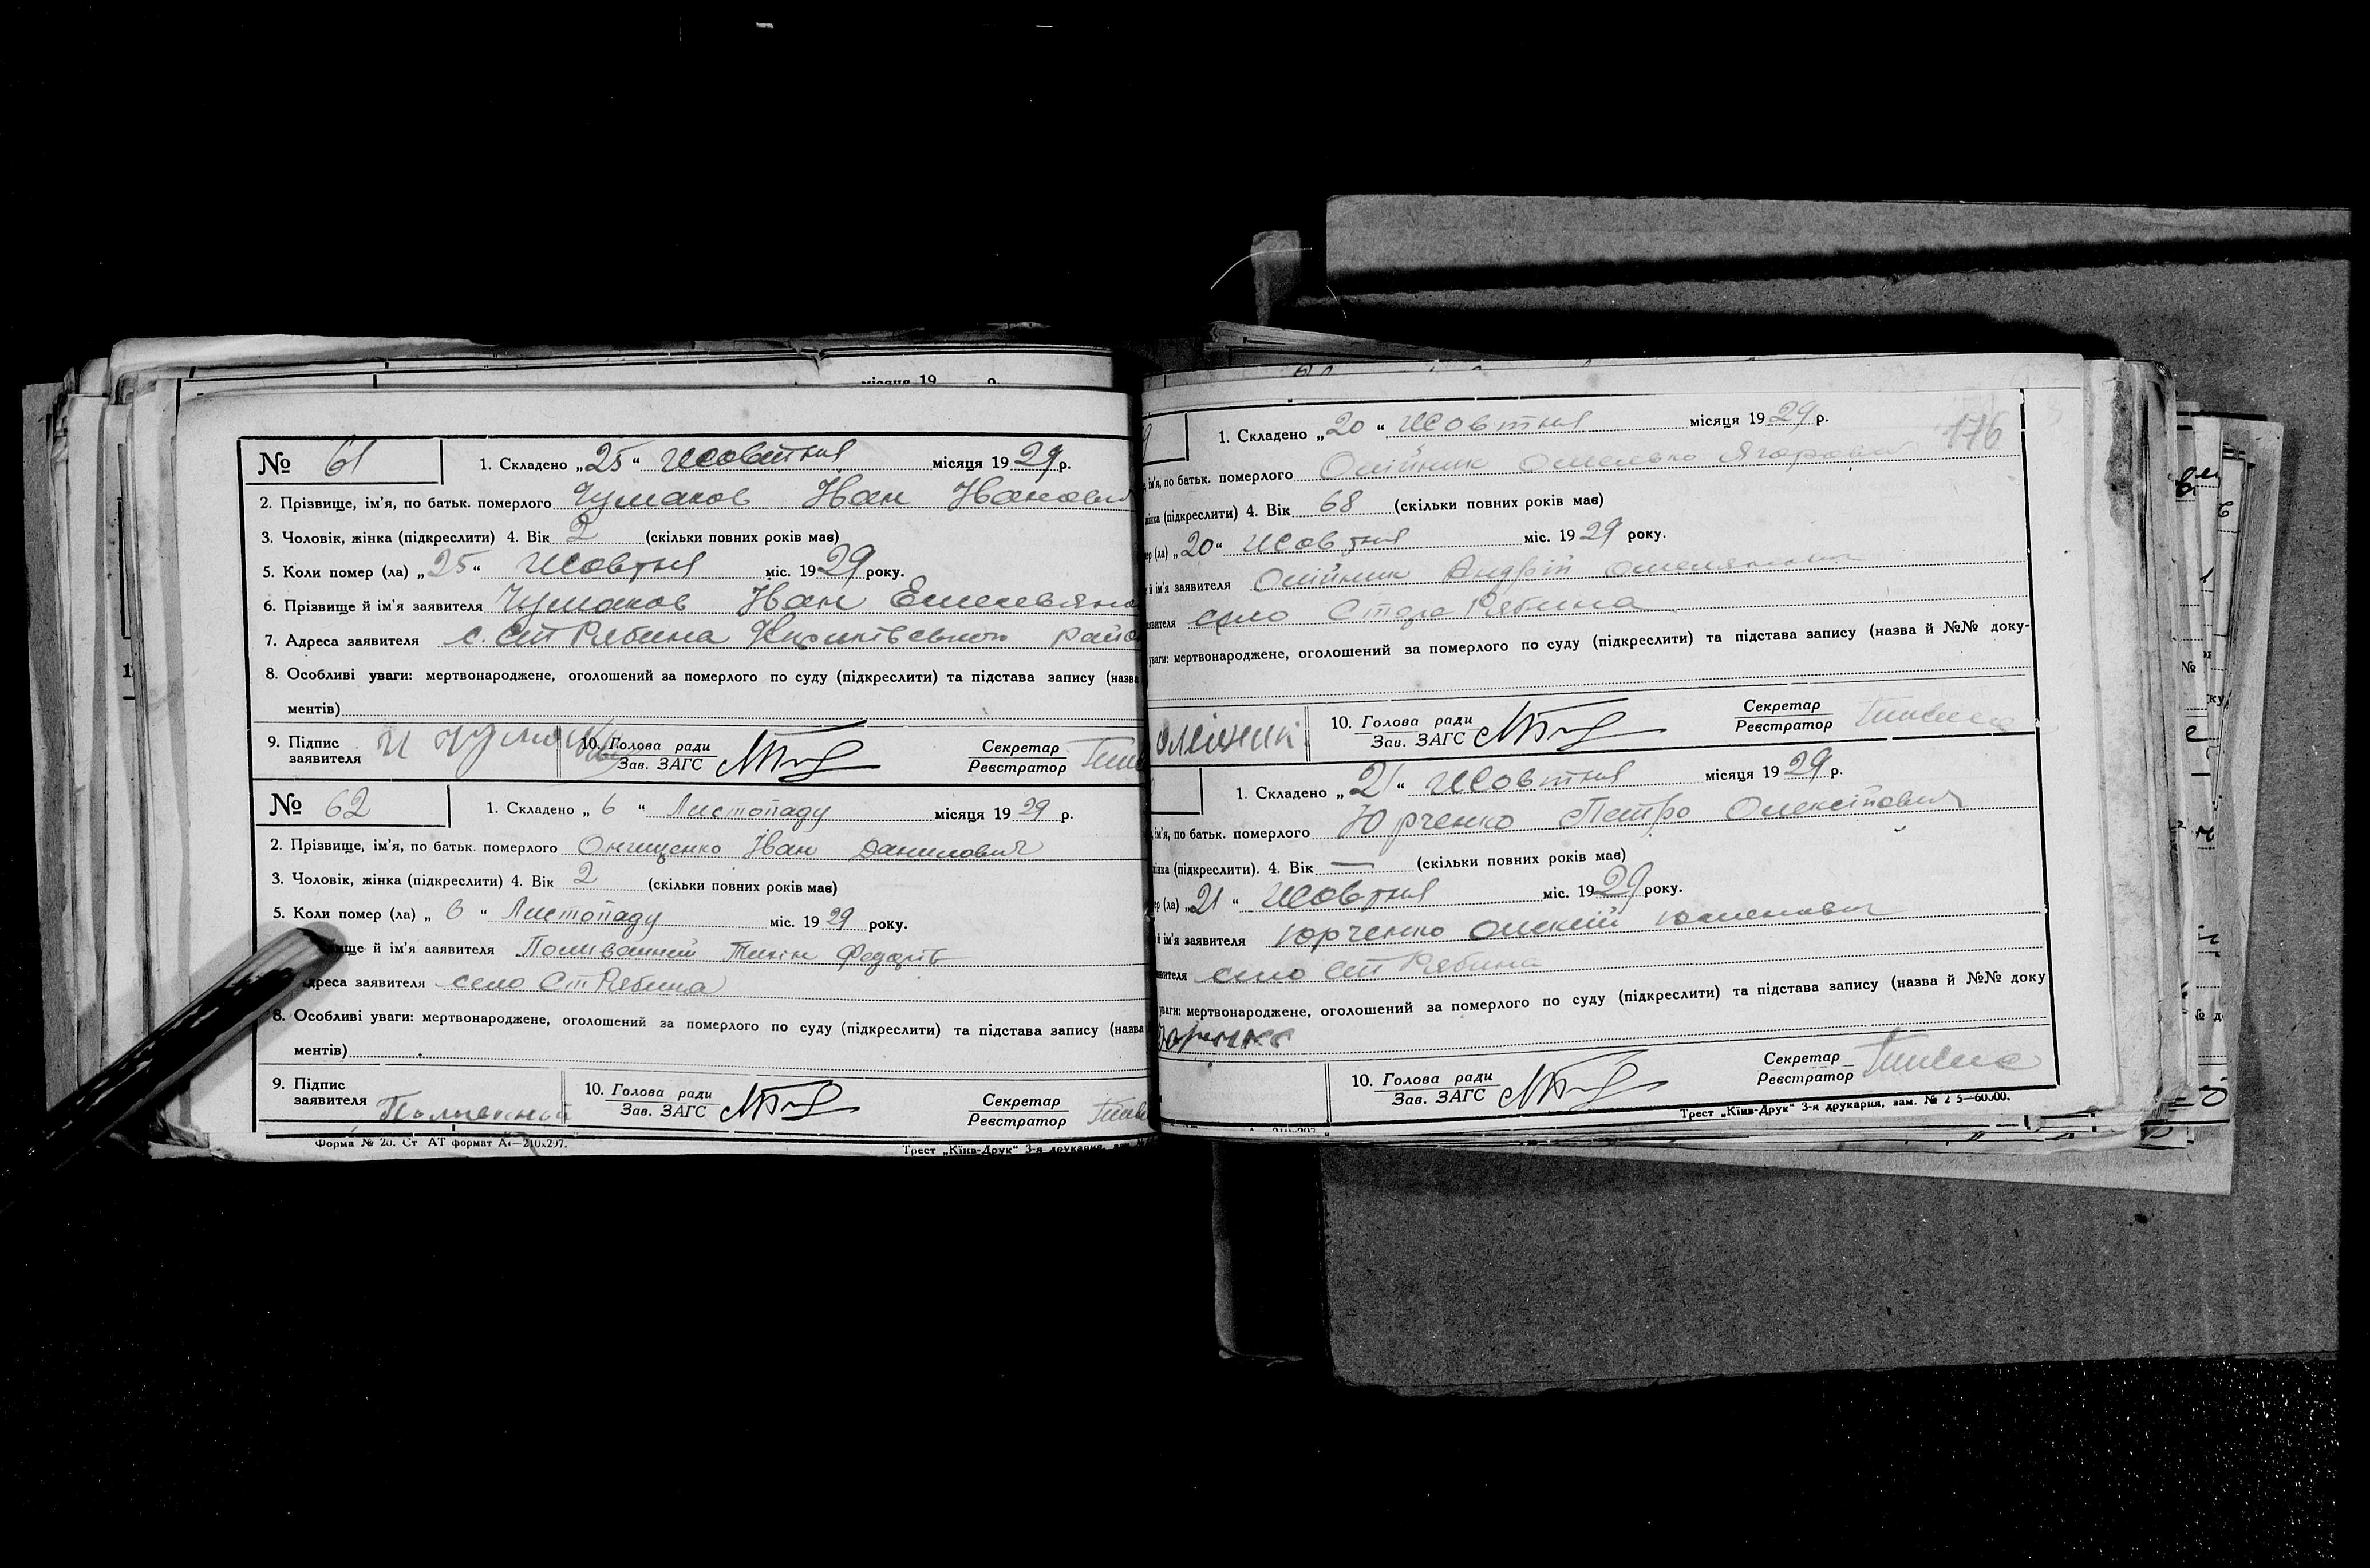 місяця 19 р.
№ 61 1. Складено „25“ Жовтня місяця 1929 р.
2. Прізвище, ім'я, по батьк. померлого Чумаков Іван Іванович
3. Чоловік, жінка (підкреслити) 4. Вік 2 (скільки повних років має)
5. Коли помер (ла) „25“ Жовтня міс. 1929 року.
6. Прізвище й ім'я заявителя Чумаков Іван
7. Адреса заявителя с. Ст Рябина райо
8. Особливі уваги: мертвонароджене, оголошений за померлого по суду (підкреслити) та підстава запису (назва
ментів)
9. Підпис заявителя И Чумаков 10. Голова ради Зав. ЗАГС Секретар Реєстратор
№ 62 1. Складено „6“ Листопаду місяця 1929 р.
2. Прізвище, ім'я, по батьк. померлого Онищенко Іван Данилович
3. Чоловік, жінка (підкреслити) 4. Вік 2 (скільки повних років має)
5. Коли помер (ла) „6“ Листопаду міс. 1929 року.
ище й ім'я заявителя Поливанний
дреса заявителя село Ст Рябина
8. Особливі уваги: мертвонароджене, оголошений за померлого по суду (підкреслити) та підстава запису (назва
ментів)
9. Підпис заявителя 10. Голова ради Зав. ЗАГС Секретар Реєстратор
Форма № 20. Ст АТ формат А4—210х297. Трест „Київ-Друк“ 3-я друкарня,
9 1. Складено „20“ Жовтня місяця 1929 р.
176
ім'я, по батьк. померлого Олійник Омелько
жінка (підкреслити) 4. Вік 68 (скільки повних років має)
ер (ла) „20“ Жовтня міс. 1929 року.
й ім'я заявителя Олійник Андрій Омелянович
явителя село Стара Рябина
уваги: мертвонароджене, оголошений за померлого по суду (підкреслити) та підстава запису (назва й №№ доку-
Олійник 10. Голова ради Зав. ЗАГС Секретар Реєстратор
1. Складено „21“ Жовтня місяця 1929 р.
ім'я, по батьк. померлого Юрченко Петро Олексійович
жінка (підкреслити). 4. Вік — (скільки повних років має)
ер (ла) „21“ Жовтня міс. 1929 року.
й ім'я заявителя Юрченко Олексій
явителя село Ст Рябина
уваги: мертвонароджене, оголошений за померлого по суду (підкреслити) та підстава запису (назва й №№ доку
10. Голова ради Зав. ЗАГС Секретар Реєстратор
Трест „Київ-Друк“ 3-я друкарня, зам. №